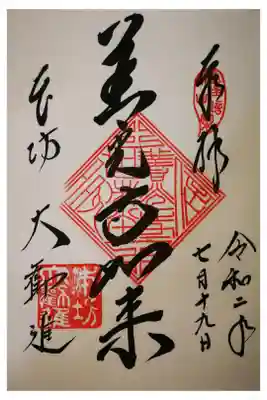 奉拝
令和二年
七月十九日
善光寺如来
本坊 大勧進